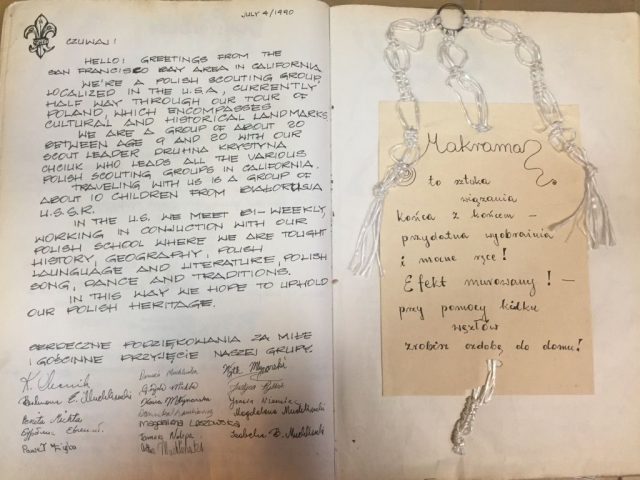 JULY 4/1990
CZUWAJ!
HELLO! GREETINGS FROM THE
SAN FRANCISCO BAY AREA IN CALIFORNIA
WE'RE A POLISH SCOUTING GROUP,
LOCALIZED IN THE U.S.A., CURRENTLY
HALF WAY THROUGH OUR TOUR OF
POLAND, WHICH ENCOMPASSES
CULTURAL AND HISTORICAL LANDMARKS.
WE ARE A GROUP OF ABOUT 20
BETWEEN AGE 9 AND 20 WITH OUR
SCOUT LEADER DRUHNA KRYSTYNA
CHCIUK WHO LEADS ALL THE VARIOUS
POLISH SCOUTING GROUPS IN CALIFORNIA.
TRAVELING WITH US IS A GROUP OF
ABOUT 10 CHILDREN FROM BIAŁORUSIA
U.S.S.R.
IN THE U.S. WE MEET BI-WEEKLY,
WORKING IN CONJUCTION WITH OUR
POLISH SCHOOL WHERE WE ARE TOUGHT
HISTORY, GEOGRAPHY, POLISH
LANGUAGE AND LITERATURE, POLISH
SONG, DANCE AND TRADITIONS.
IN THIS WAY WE HOPE TO UPHOLD
OUR POLISH HERITAGE.
SERDECZNE PODZIĘKOWANIA ZA MIŁE
I GOŚCINNE PRZYJĘCIE NASZEJ GRUPY.
Magdalena
Tomasz
Izabela B.
Paweł Zięba
Makrama
to sztuka
wiązania
końca z końcem –
przydatna wyobraźnia
i mocne ręce!
Efekt murowany! –
przy pomocy kilku
węzłów
zrobisz ozdobę do domu!